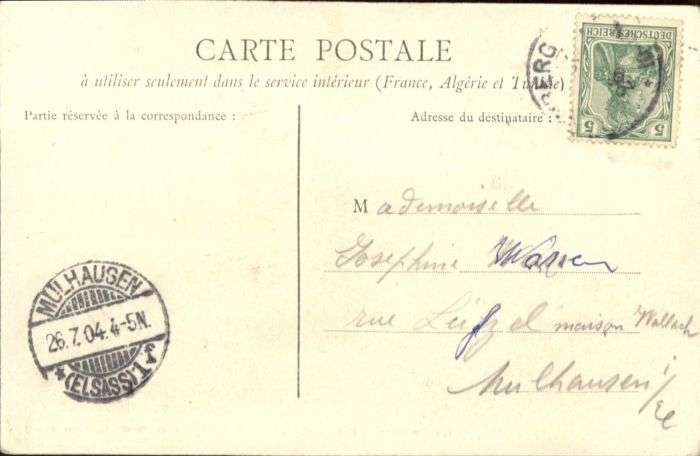 CARTE POSTALE
à utiliser seulement dans le service intérieur (France, Algérie et Tunisie)
Partie réservée à la correspondance :
Adresse du destinataire :
DEUTSCHES REICH
5 5
BERG
Mademoiselle
Josephine
rue maison Wallach
Mulhausen i/
MÜLHAUSEN
26.7.04.4-5N.
*(ELSASS)1*